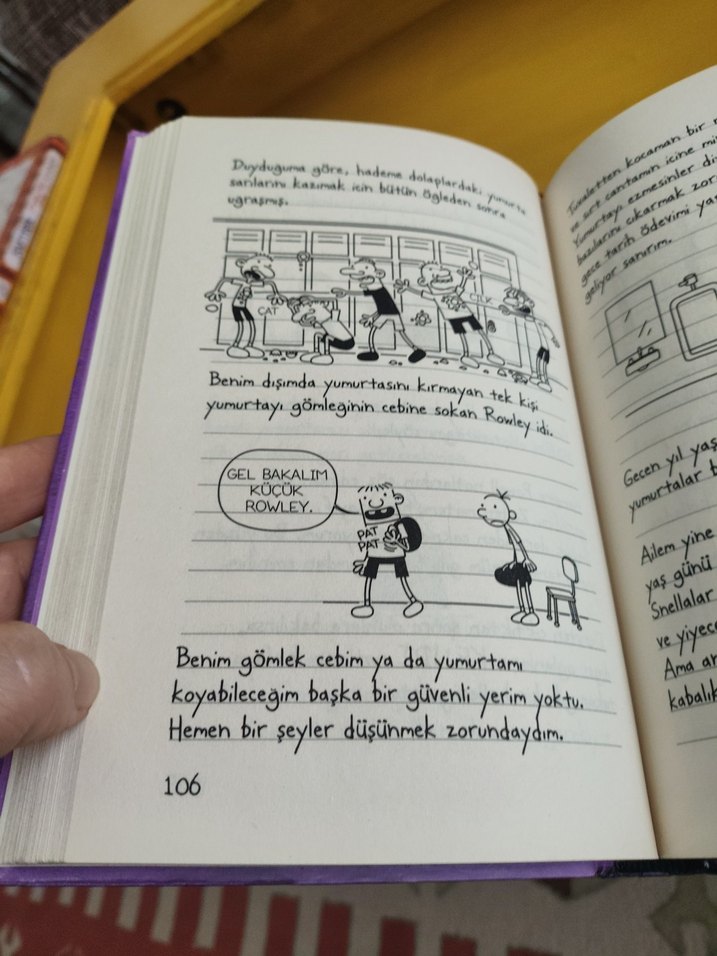 Duyduğuma göre, hademe dolaplardaki yumurta
sarılarını kazımak için bütün öğleden sonra
uğraşmış.
ÇAT
ÇILK
Benim dışımda yumurtasını kırmayan tek kişi
yumurtayı gömleğinin cebine sokan Rowley idi.
GEL BAKALIM
KÜÇÜK
ROWLEY.
PAT
PAT
Benim gömlek cebim ya da yumurtamı
koyabileceğim başka bir güvenli yerim yoktu.
Hemen bir şeyler düşünmek zorundaydım.
106
Tuvaletten kocaman bir
ve sırt çantamın içine
Yumurtayı ezmesinler
bazılarını çıkarmak
gece tarih ödevimi
geliyor sanırım.
Geçen yıl
yumurtalar
Ailem yine
yaş günü
Snellalar
ve
Ama